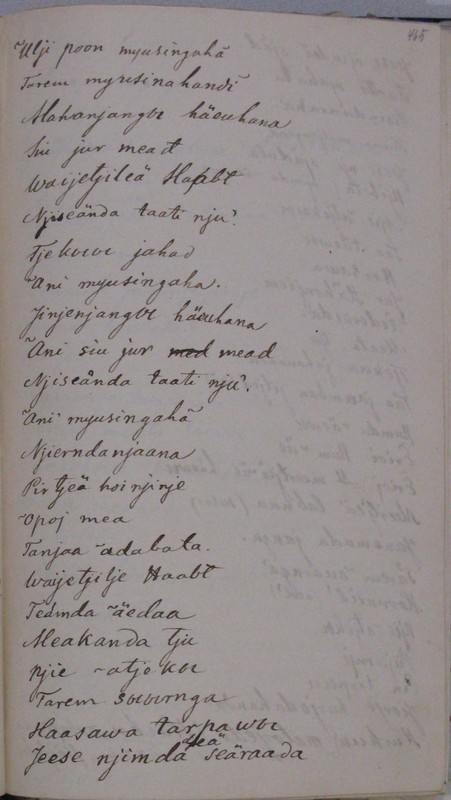 465
Ulji poon myusingahã
Tarem myusinahandi
Mahanjangoi häeuhana
Siu jur mead
waijetjileä Haabt
Njiseända taati nju'.
Tjekoioi jahad
Ani myusingaha.
Jinjenjangoi häeuhana
Ani siu jur med mead
Njiseånda taati nju'.
Ani myusingahã
Njierndanjaana
Pirtjeä hoinjinje
opoj mea
Tanjaa adabata.
waijetjilje Haabt
Teamda äedaa
Meakanda tju
njie atjekoi
Tarem
Haasawa tarpawoi
Jeese njimda deä seäraada